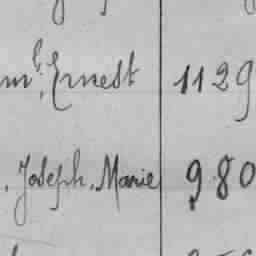 m^l, Ernest 1129
, Joseph, Marie 980